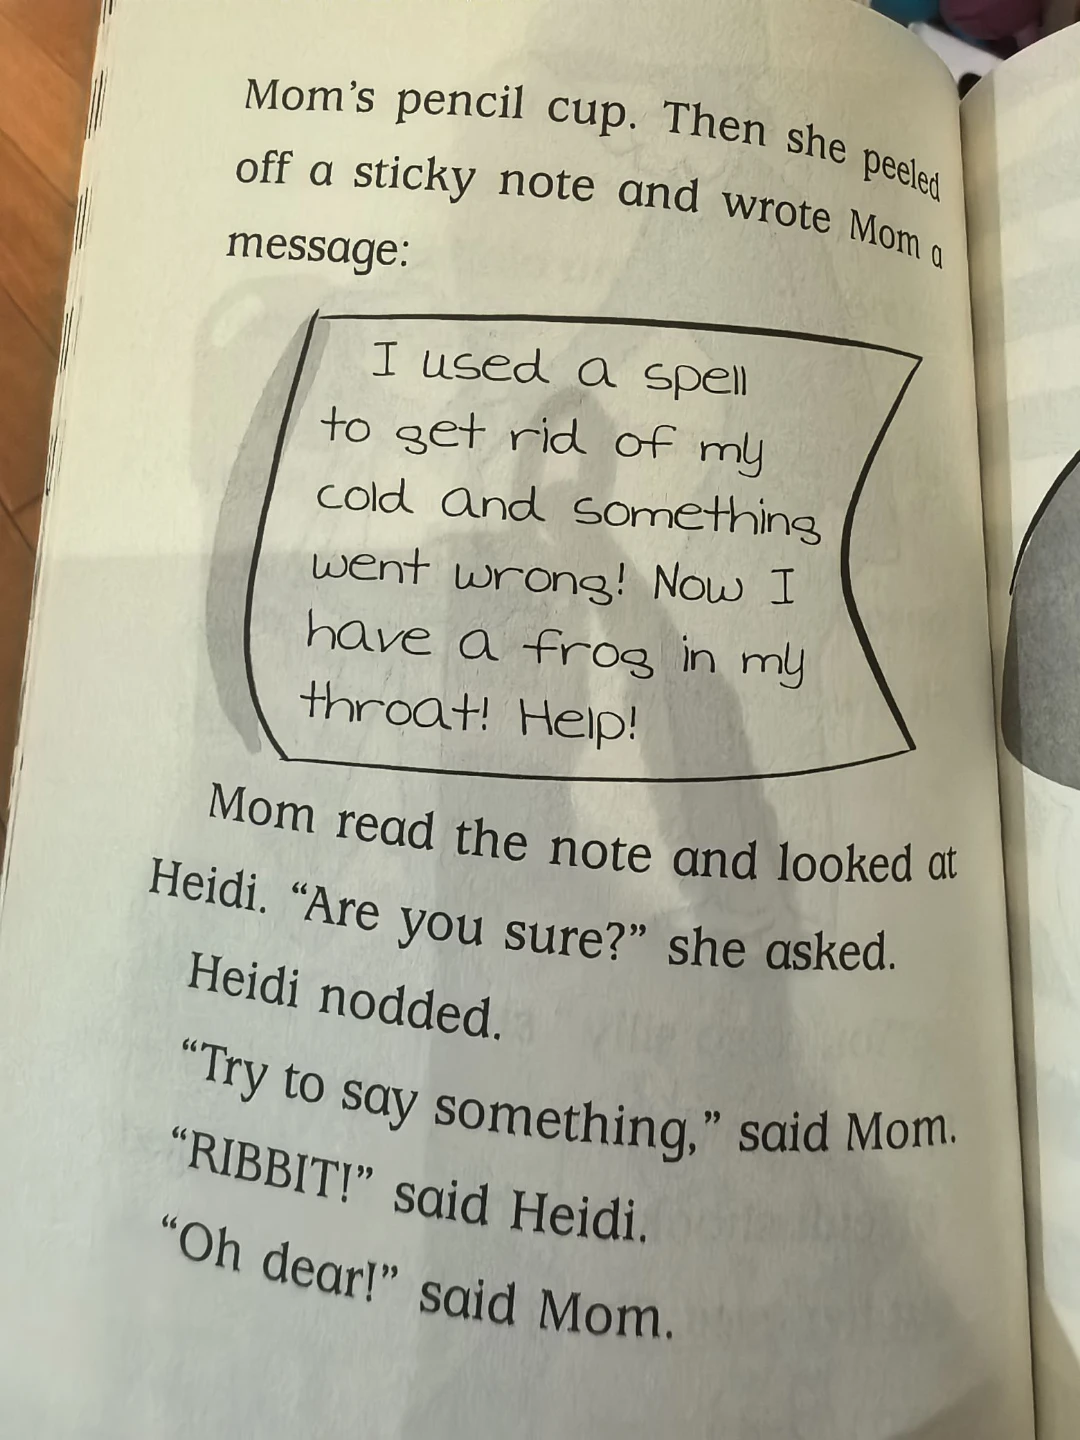 Mom's pencil cup. Then she peeled
off a sticky note and wrote Mom a
message:
I used a spell
to get rid of my
cold and something
went wrong! Now I
have a frog in my
throat! Help!
Mom read the note and looked at
Heidi. “Are you sure?” she asked.
Heidi nodded.
“Try to say something,” said Mom.
“RIBBIT!” said Heidi.
“Oh dear!” said Mom.